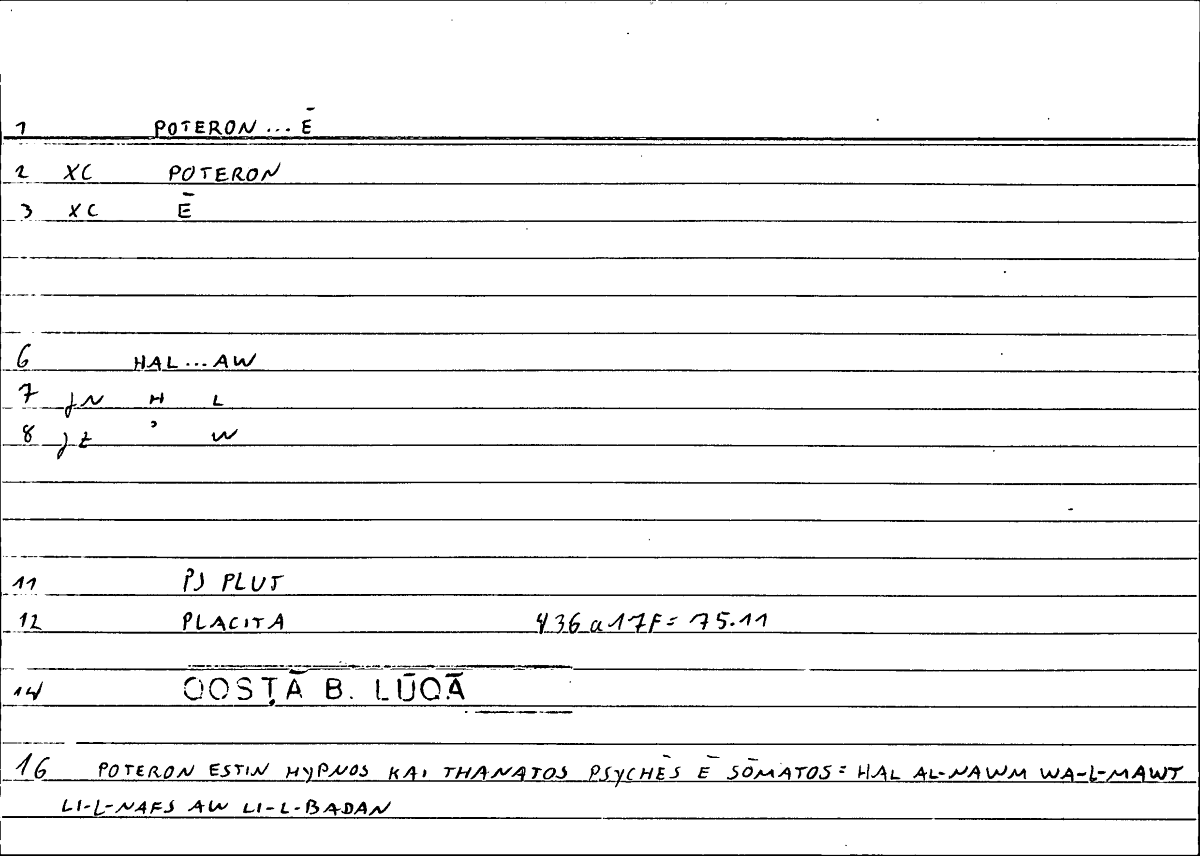 1 POTERON ... Ē
2 XC POTERON
3 XC Ē
6 HAL ... AW
7 JN H L
8 JZ ʾ W
11 PS PLUT
12 PLACITA 436a17F = 75.11
14 QOSṬĀ B. LŪQĀ
16 POTERON ESTIN HYPNOS KAI THANATOS PSYCHĒS Ē SŌMATOS = HAL AL-NAWM WA-L-MAWT
LI-L-NAFS AW LI-L-BADAN